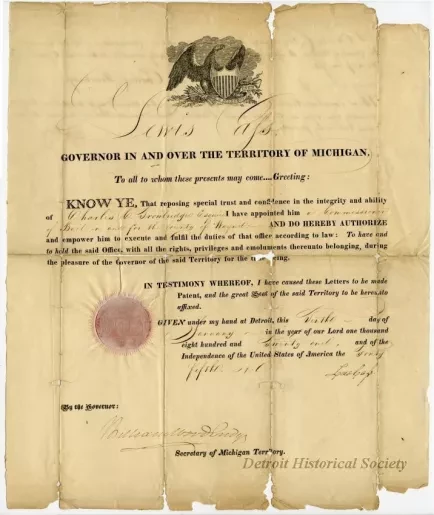 Lewis Cass
GOVERNOR IN AND OVER THE TERRITORY OF MICHIGAN,
To all to whom these presents may come....Greeting:
KNOW YE, That reposing special trust and confidence in the integrity and ability
of Charles C. I have appointed him a Commissioner
of in and for the County of Wayne AND DO HEREBY AUTHORIZE
and empower him to execute and fulfil the duties of that office according to law: To have and
to hold the said Office, with all the rights, privileges and emoluments thereunto belonging, during
the pleasure of the Governor of the said Territory for the being.
IN TESTIMONY WHEREOF, I have caused these Letters to be made
Patent, and the great Seal of the said Territory to be hereunto
affixed.
GIVEN under my hand at Detroit, this day of
in the year of our Lord one thousand
eight hundred and twenty and of the
Independence of the United States of America the forty
fifth
Lew Cass
By the Governor:
William Woodbridge
Secretary of Michigan Territory.
Detroit Historical Society